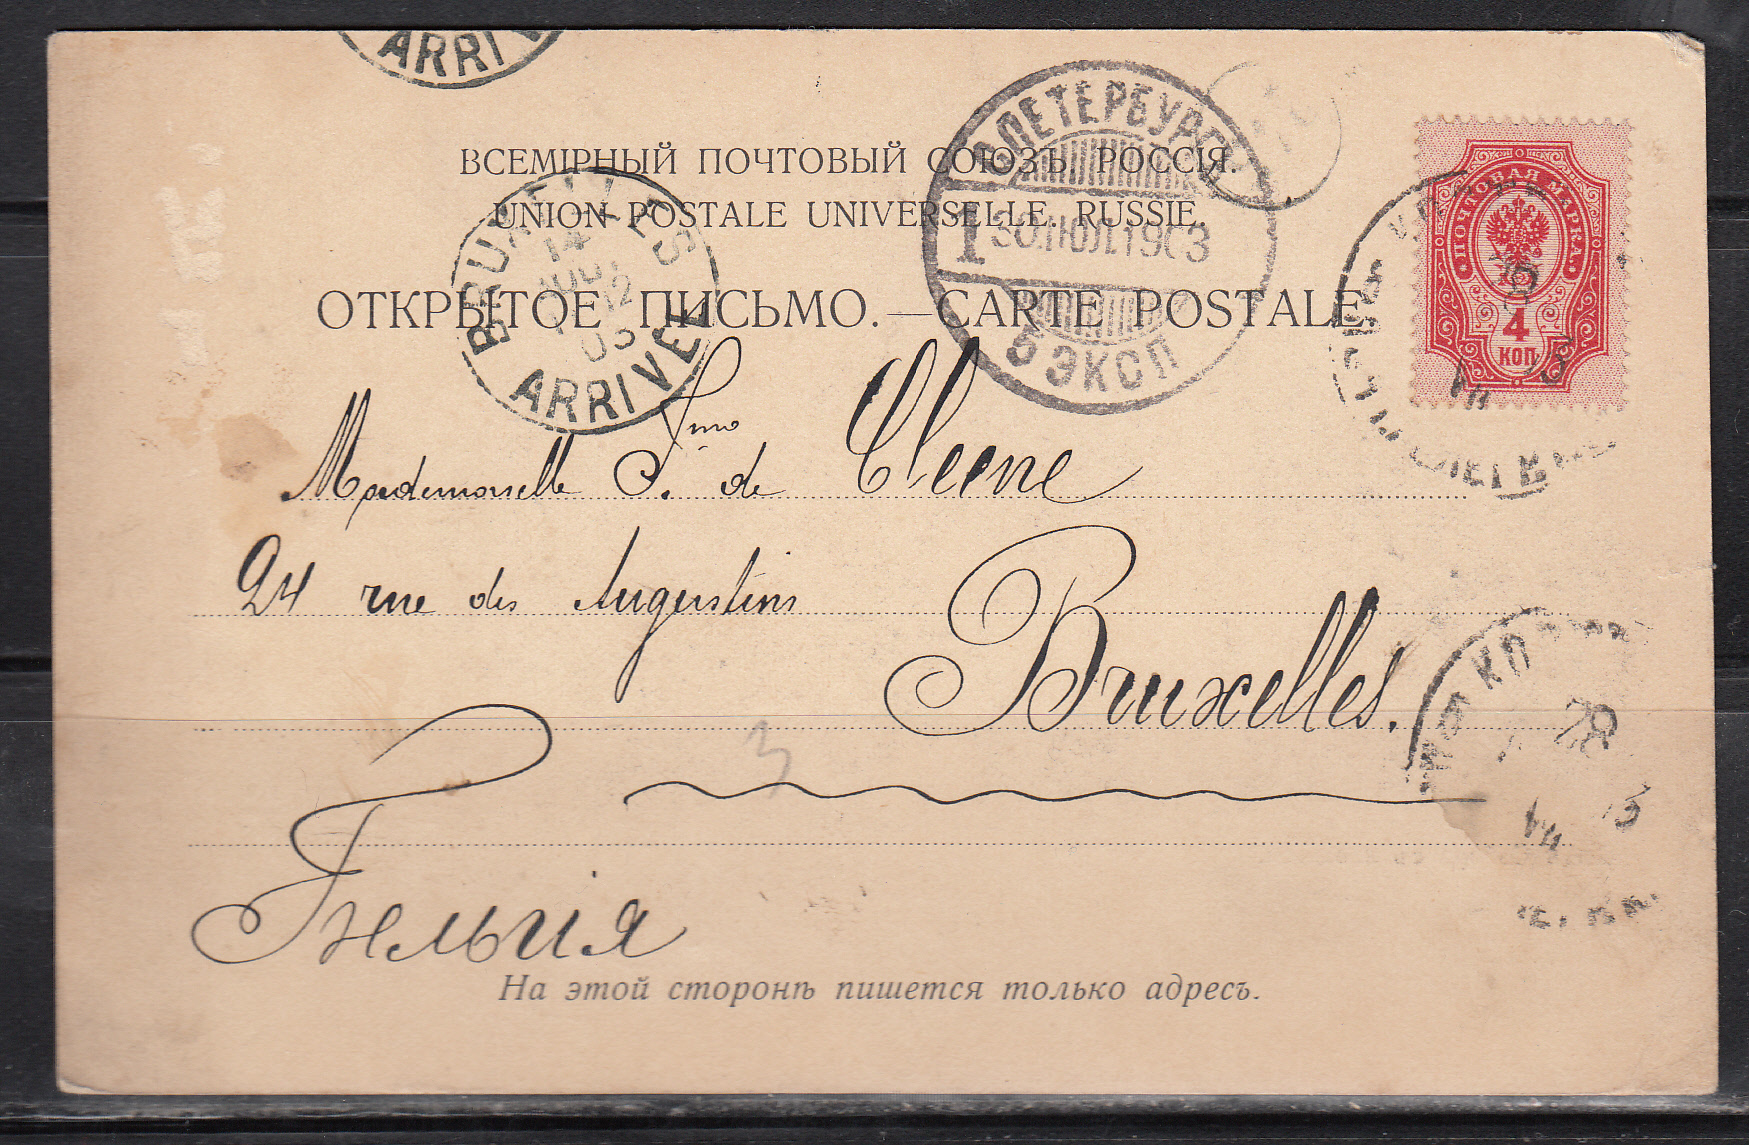 ARRIV
ВСЕМІРНЫЙ ПОЧТОВЫЙ СОЮЗЪ. РОССІЯ.
UNION POSTALE UNIVERSELLE. RUSSIE.
ОТКРЫТОЕ ПИСЬМО.—CARTE POSTALE
С.ПЕТЕРБУРГЪ
1 30.ІЮЛ.1903
5 ЭКСП
BRUXELLES
14
12
03
ARRIVEE
ПОЧТОВАЯ МАРКА
4
КОП
Mademoiselle F.mo de Cleene
24 rue des Augustins
Bruxelles.
3
Бельгія
28
На этой сторонѣ пишется только адресъ.